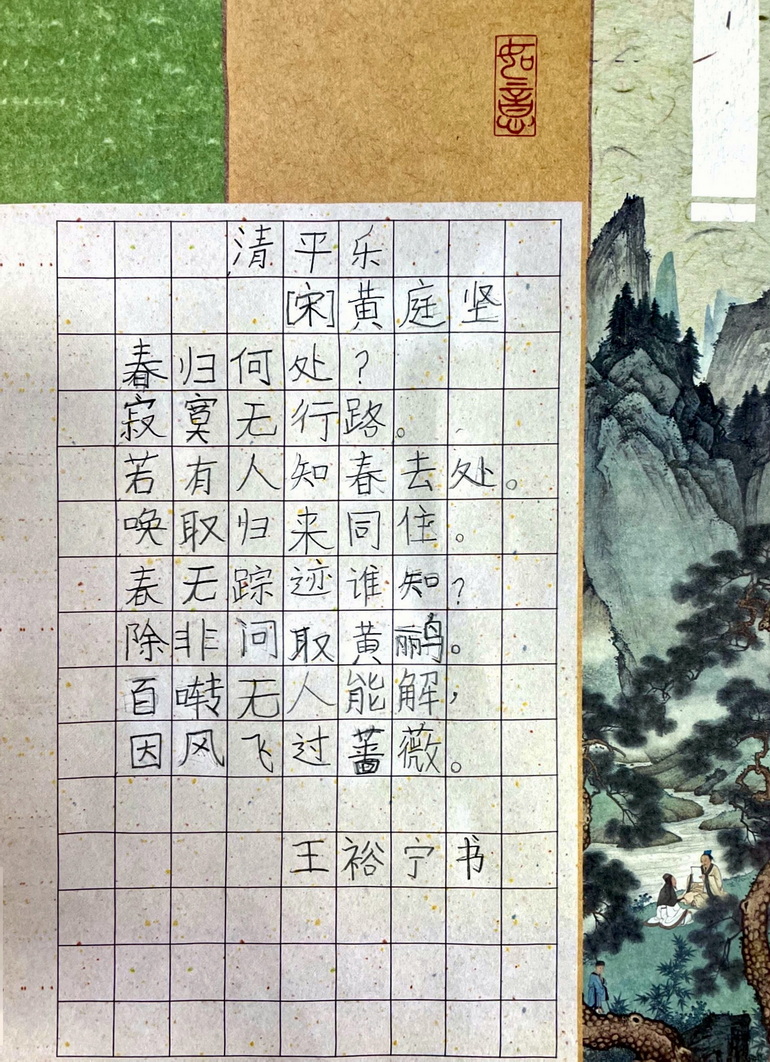 如意
清平乐
[宋]黄庭坚
春归何处?
寂寞无行路。
若有人知春去处。
唤取归来同住。
春无踪迹谁知?
除非问取黄鹂。
百啭无人能解,
因风飞过蔷薇。
王裕宁书